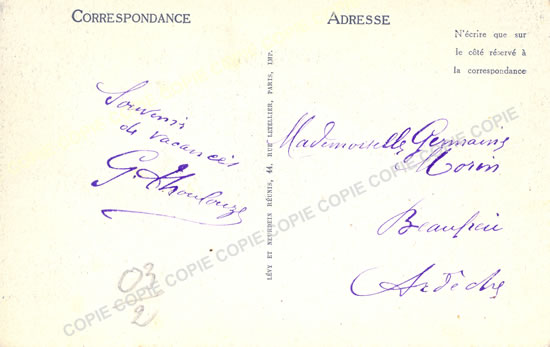 CORRESPONDANCE
ADRESSE
N'écrire que sur
le côté réservé à
la correspondance
Souvenir
de vacances
G. Thoulouze
LÉVY ET NEURDEIN RÉUNIS, 44, RUE LETELLIER, PARIS, IMP.
Mademoiselle Germaine
Morin
Beaufort
Ardèche
03
2
COPIE COPIE COPIE COPIE COPIE COPIE COPIE COPIE COPIE COPIE